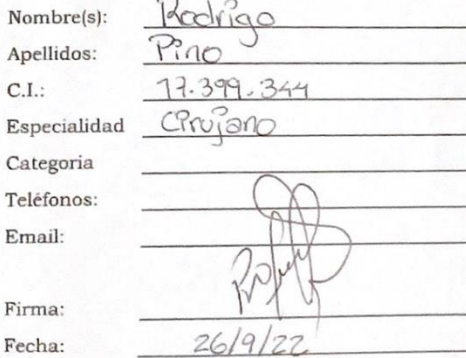 Nombre(s): Rodrigo
Apellidos: Pino
C.I.: 17.399.344
Especialidad Cirujano
Categoria
Teléfonos:
Email:
Firma:
Fecha: 26/9/22